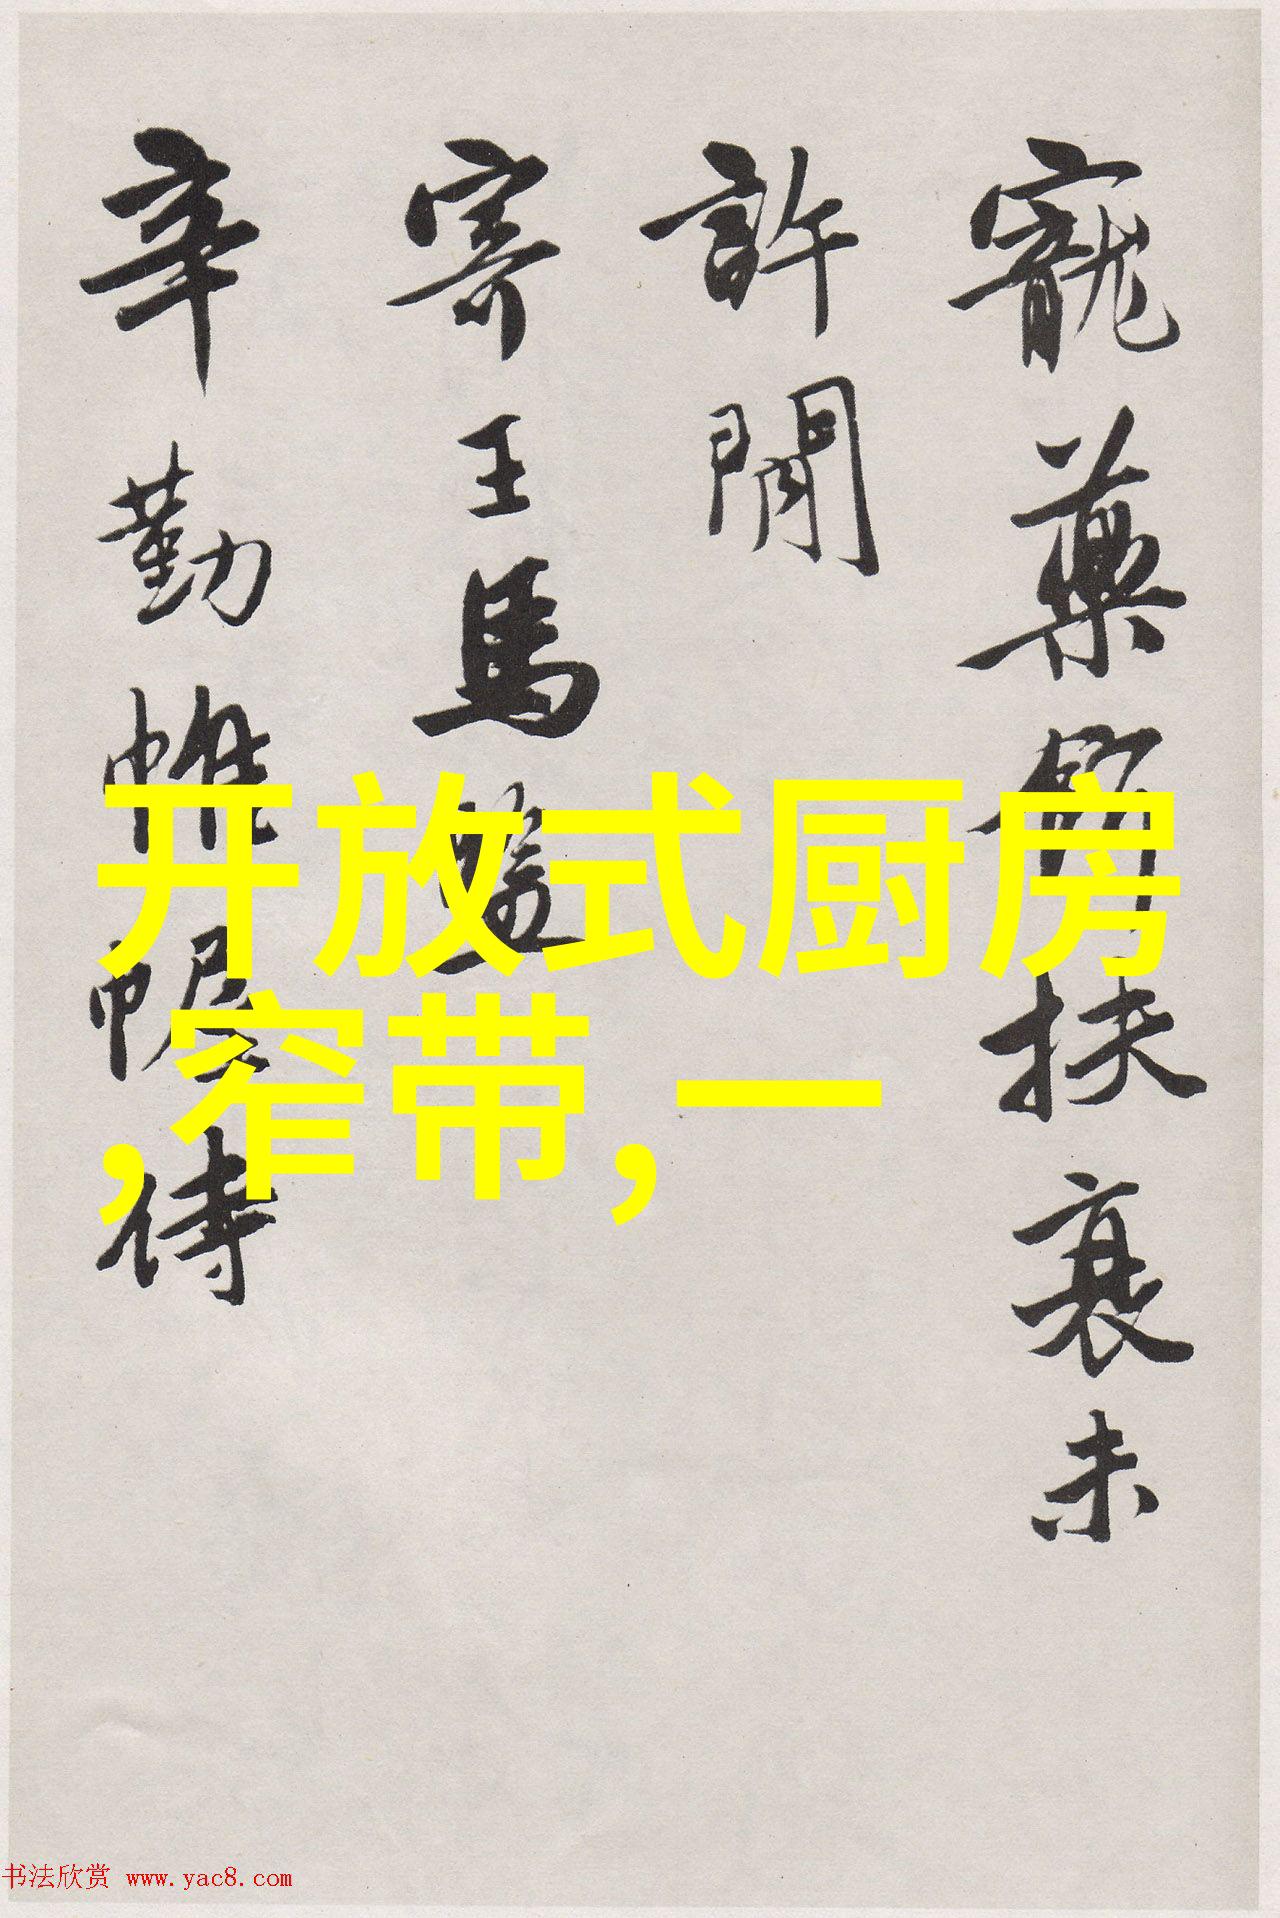 寵藥餌扶衰未
許閒
寄王馬
辛勤帷幄侍
开放式厨房
,窄带,一
书法欣赏 www.yac8.com